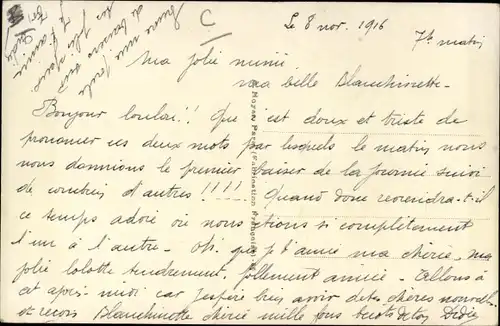 Le 8 nov. 1916
7h matin
C
Ma jolie mimi
ma belle Blanchinette -
Bonjour loulai!! Que c'est doux et triste de
prononcer ces deux mots par lesquels le matin nous
nous donnions le premier baiser de la journée suivi
de combien d'autres !!!! Quand donc reviendra-t-il
ce temps adoré où nous étions si complètement
l'un à l'autre - Oh. que je t'aime ma chérie, ma
jolie lolotte tendrement, follement aimée - Allons à
cet après-midi car j'espère bien avoir de tes chères nouvelles
et reçois Blanchinette chérie mille fous baisers de ton Dédé
Encore une foule
de baisers